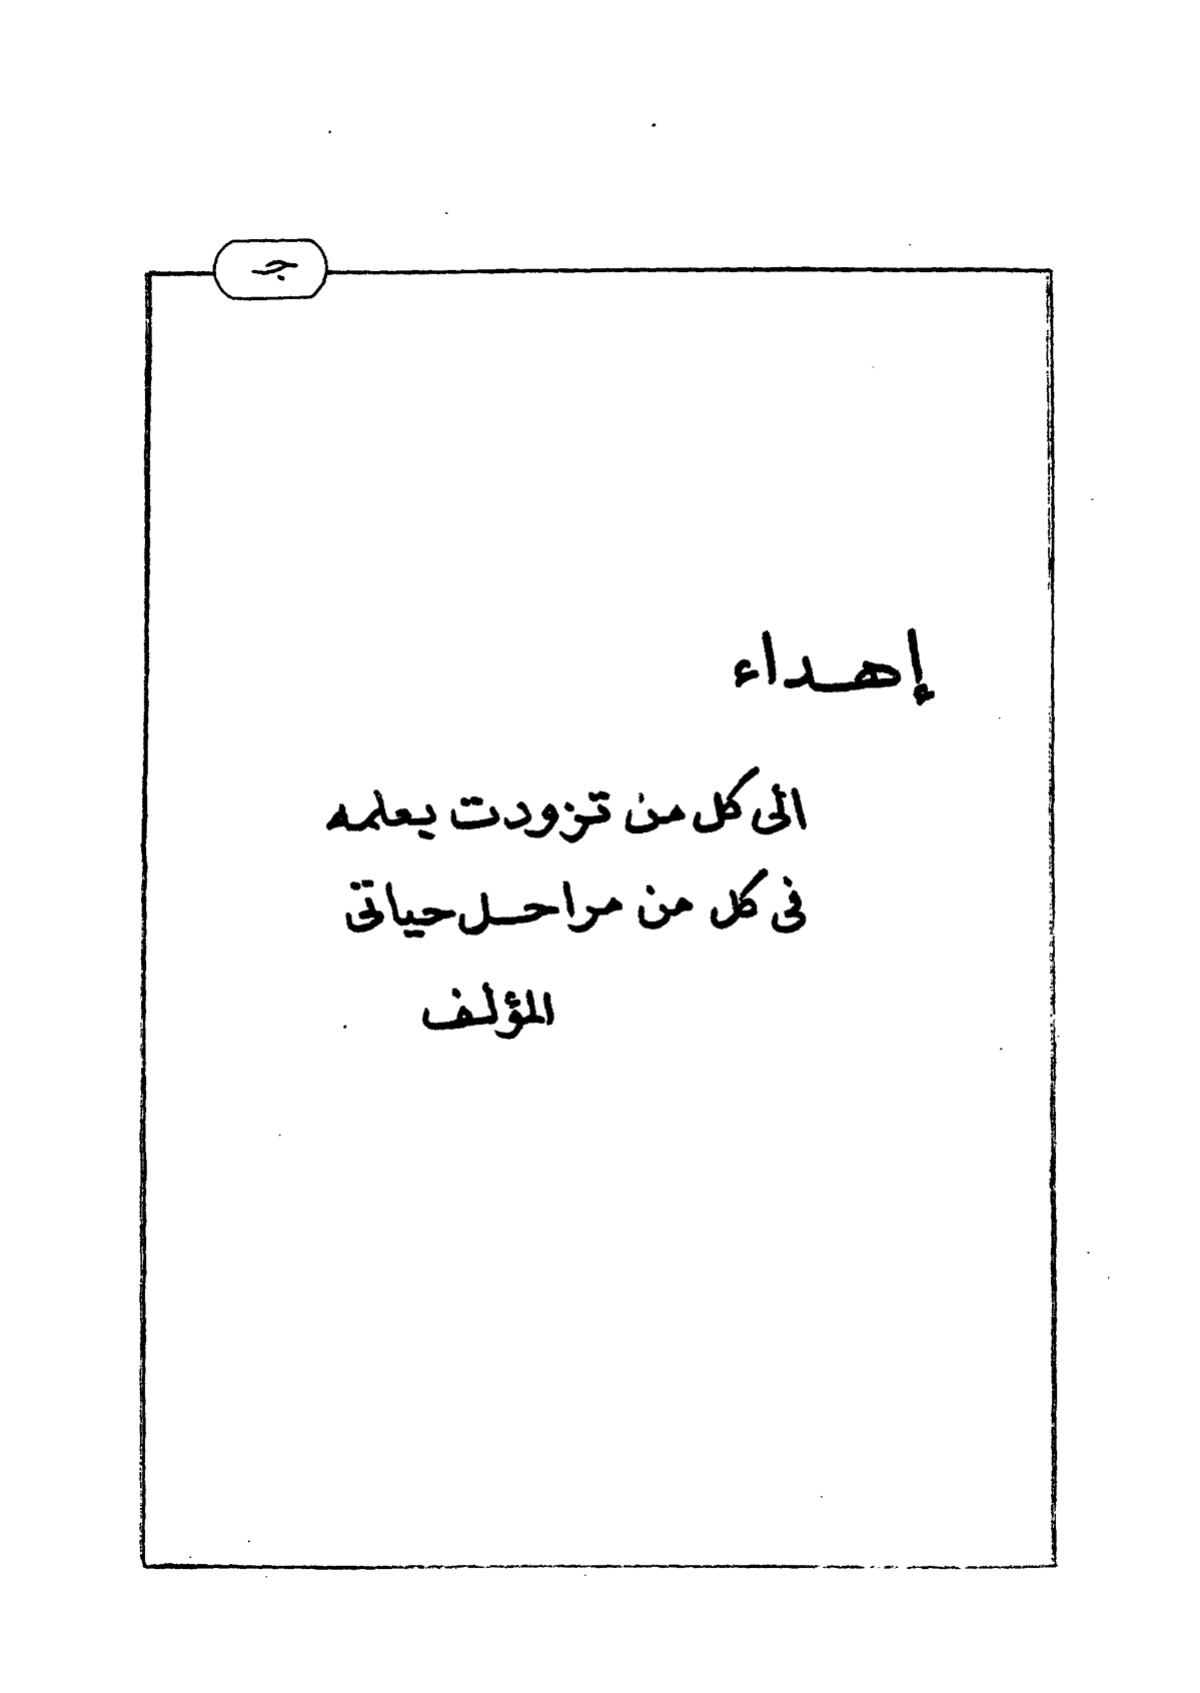 جـ
إهـداء
الى كل من تزودت بعلمه
فى كل من مراحـل حياتى
المؤلف